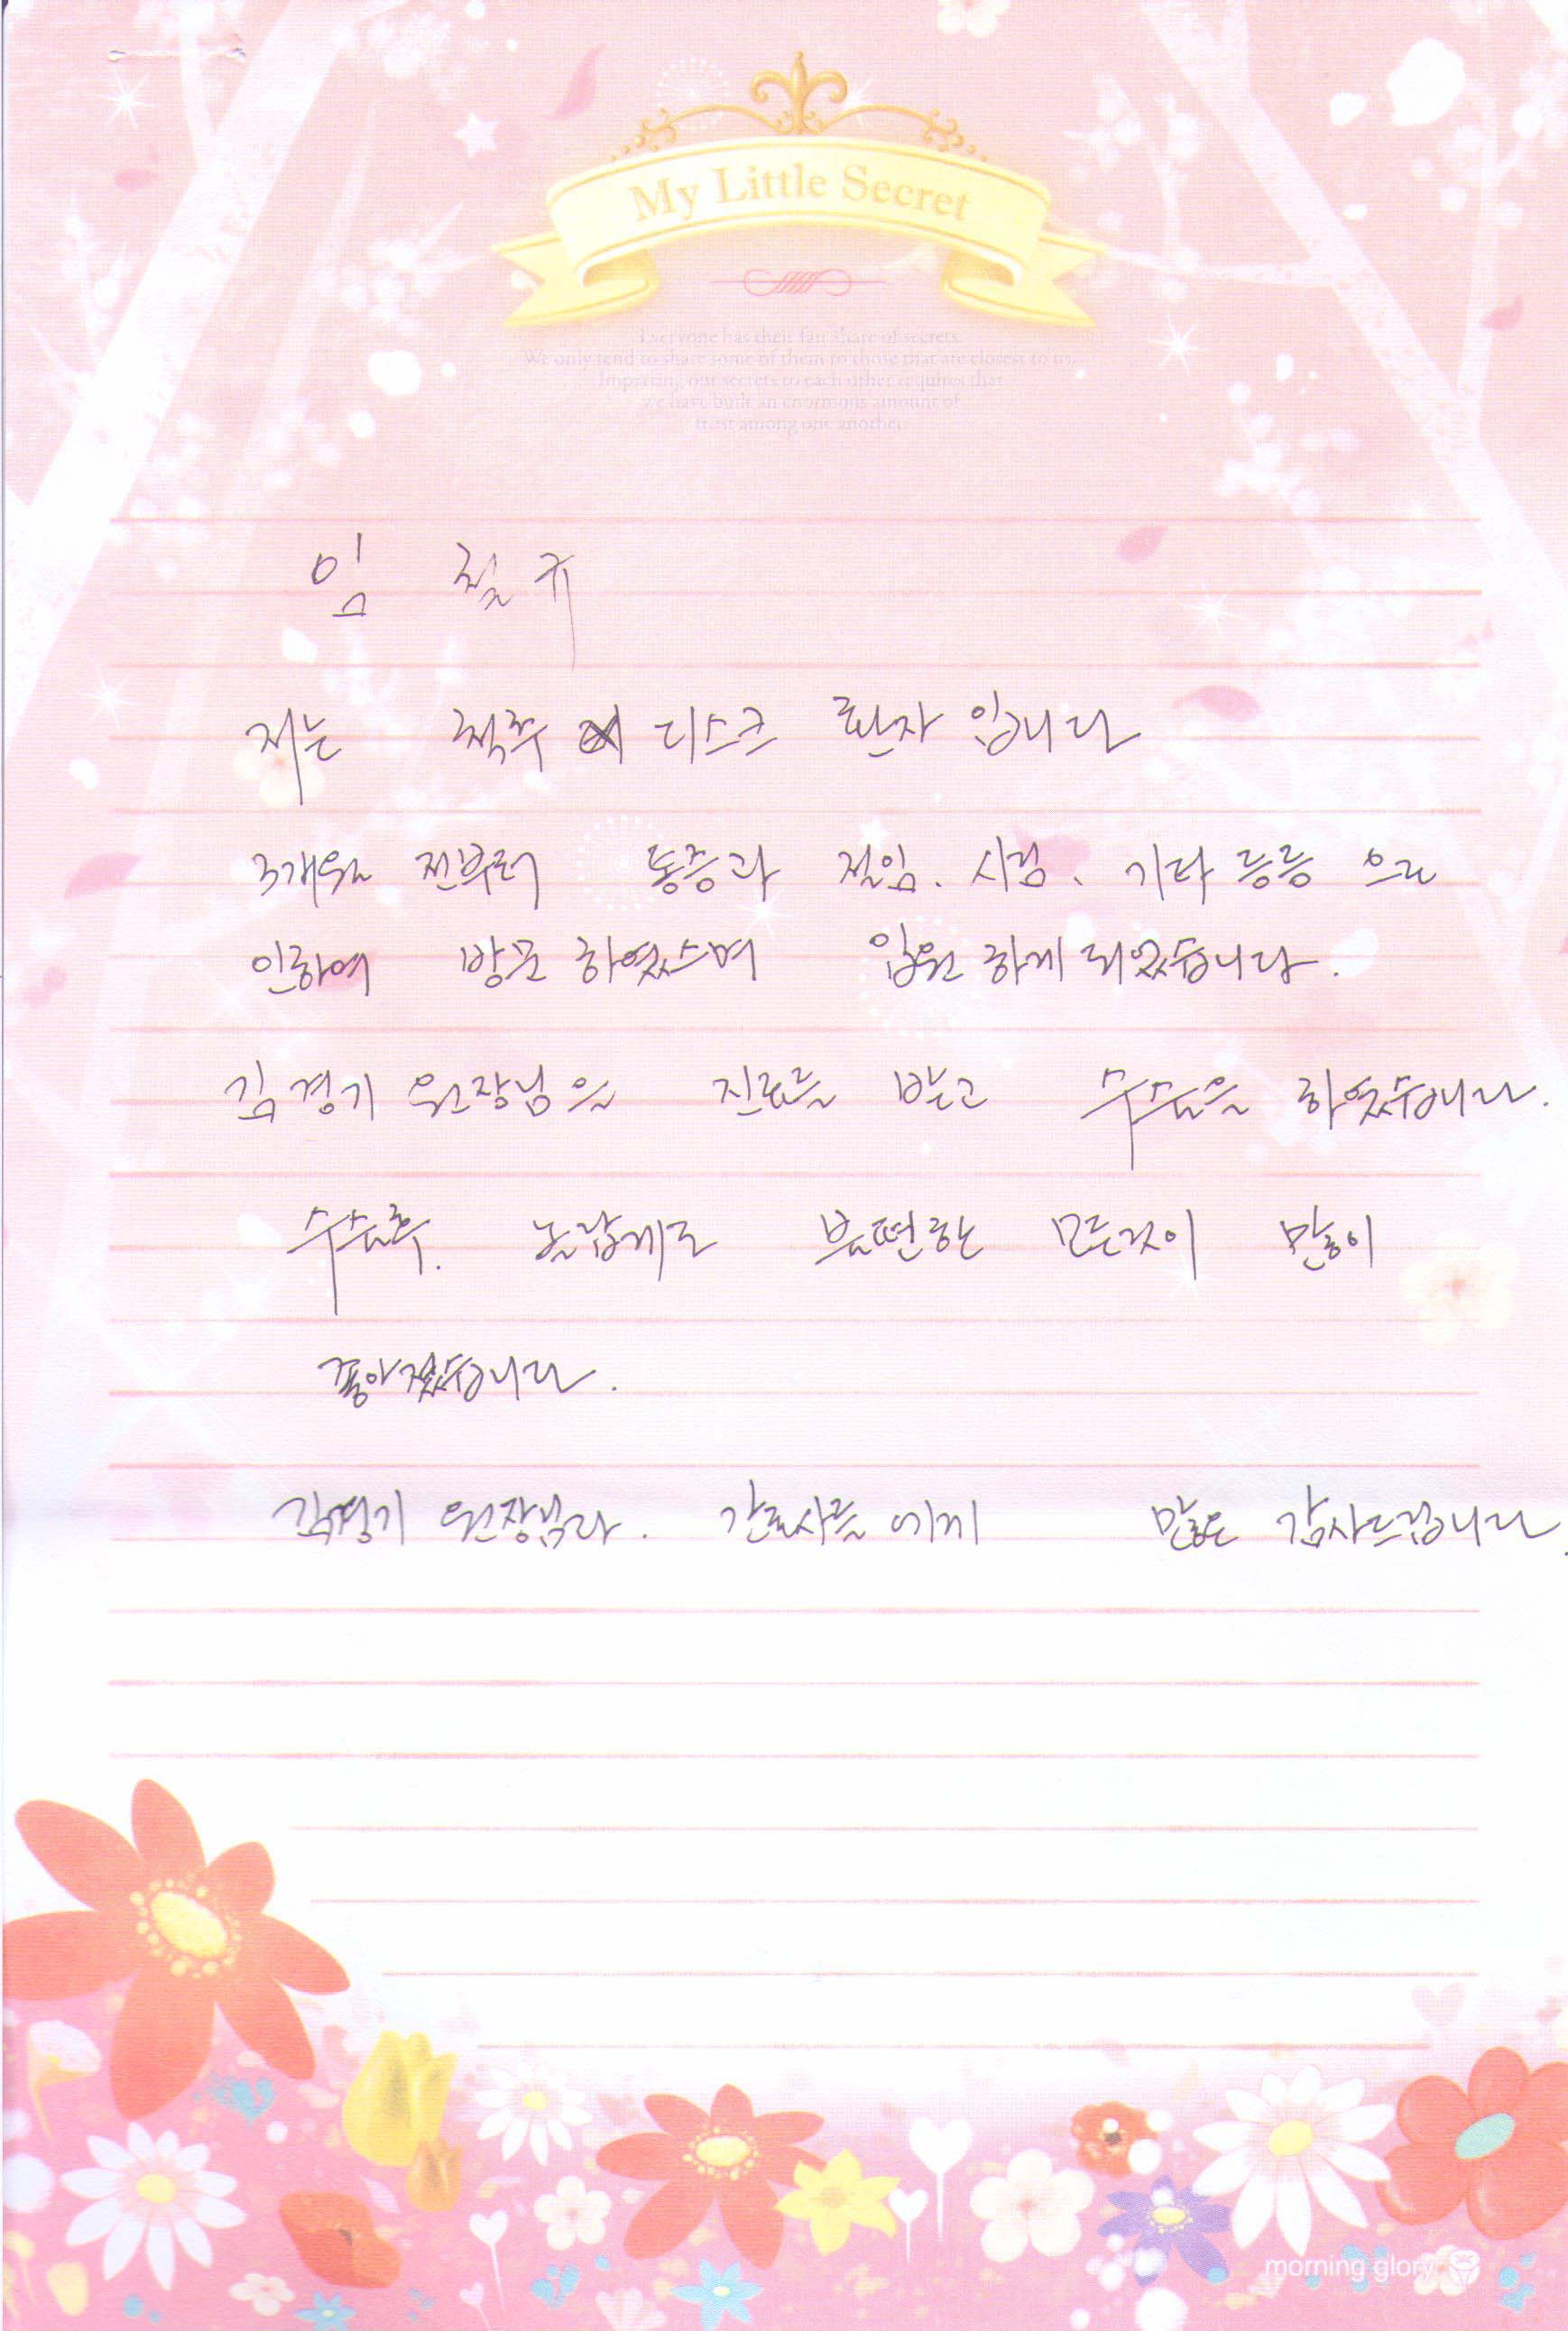 My Little Secret
Everyone has their fair share of secrets.
We only tend to share some of them to those that are closest to us.
Imparting our secrets to each other requires that
we have built an enormous amount of
trust among one another.
임 철규
저는 척추 디스크 환자 입니다
3개월 전부터 통증과 절임. 시림. 기타 등등 으로
인하여 방문 하였스며 입원 하게 되었습니다.
김경기 원장님을 진료를 받고 수술을 하였습니다.
수술후. 놀랍게도 불편한 모든것이 많이
좋아졌습니다.
김경기 원장님과. 간호사들 에게 많은 감사드립니다.
morning glory